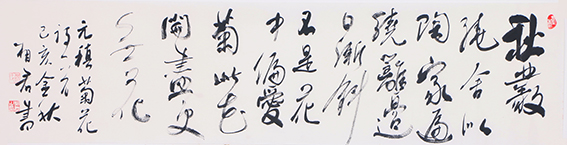 秋叢
绕舍似
陶家遍
繞籬邊
日漸斜
不是花
中偏愛
菊此花
開盡更
無花
元稹菊花
詩一首
己亥金秋
書